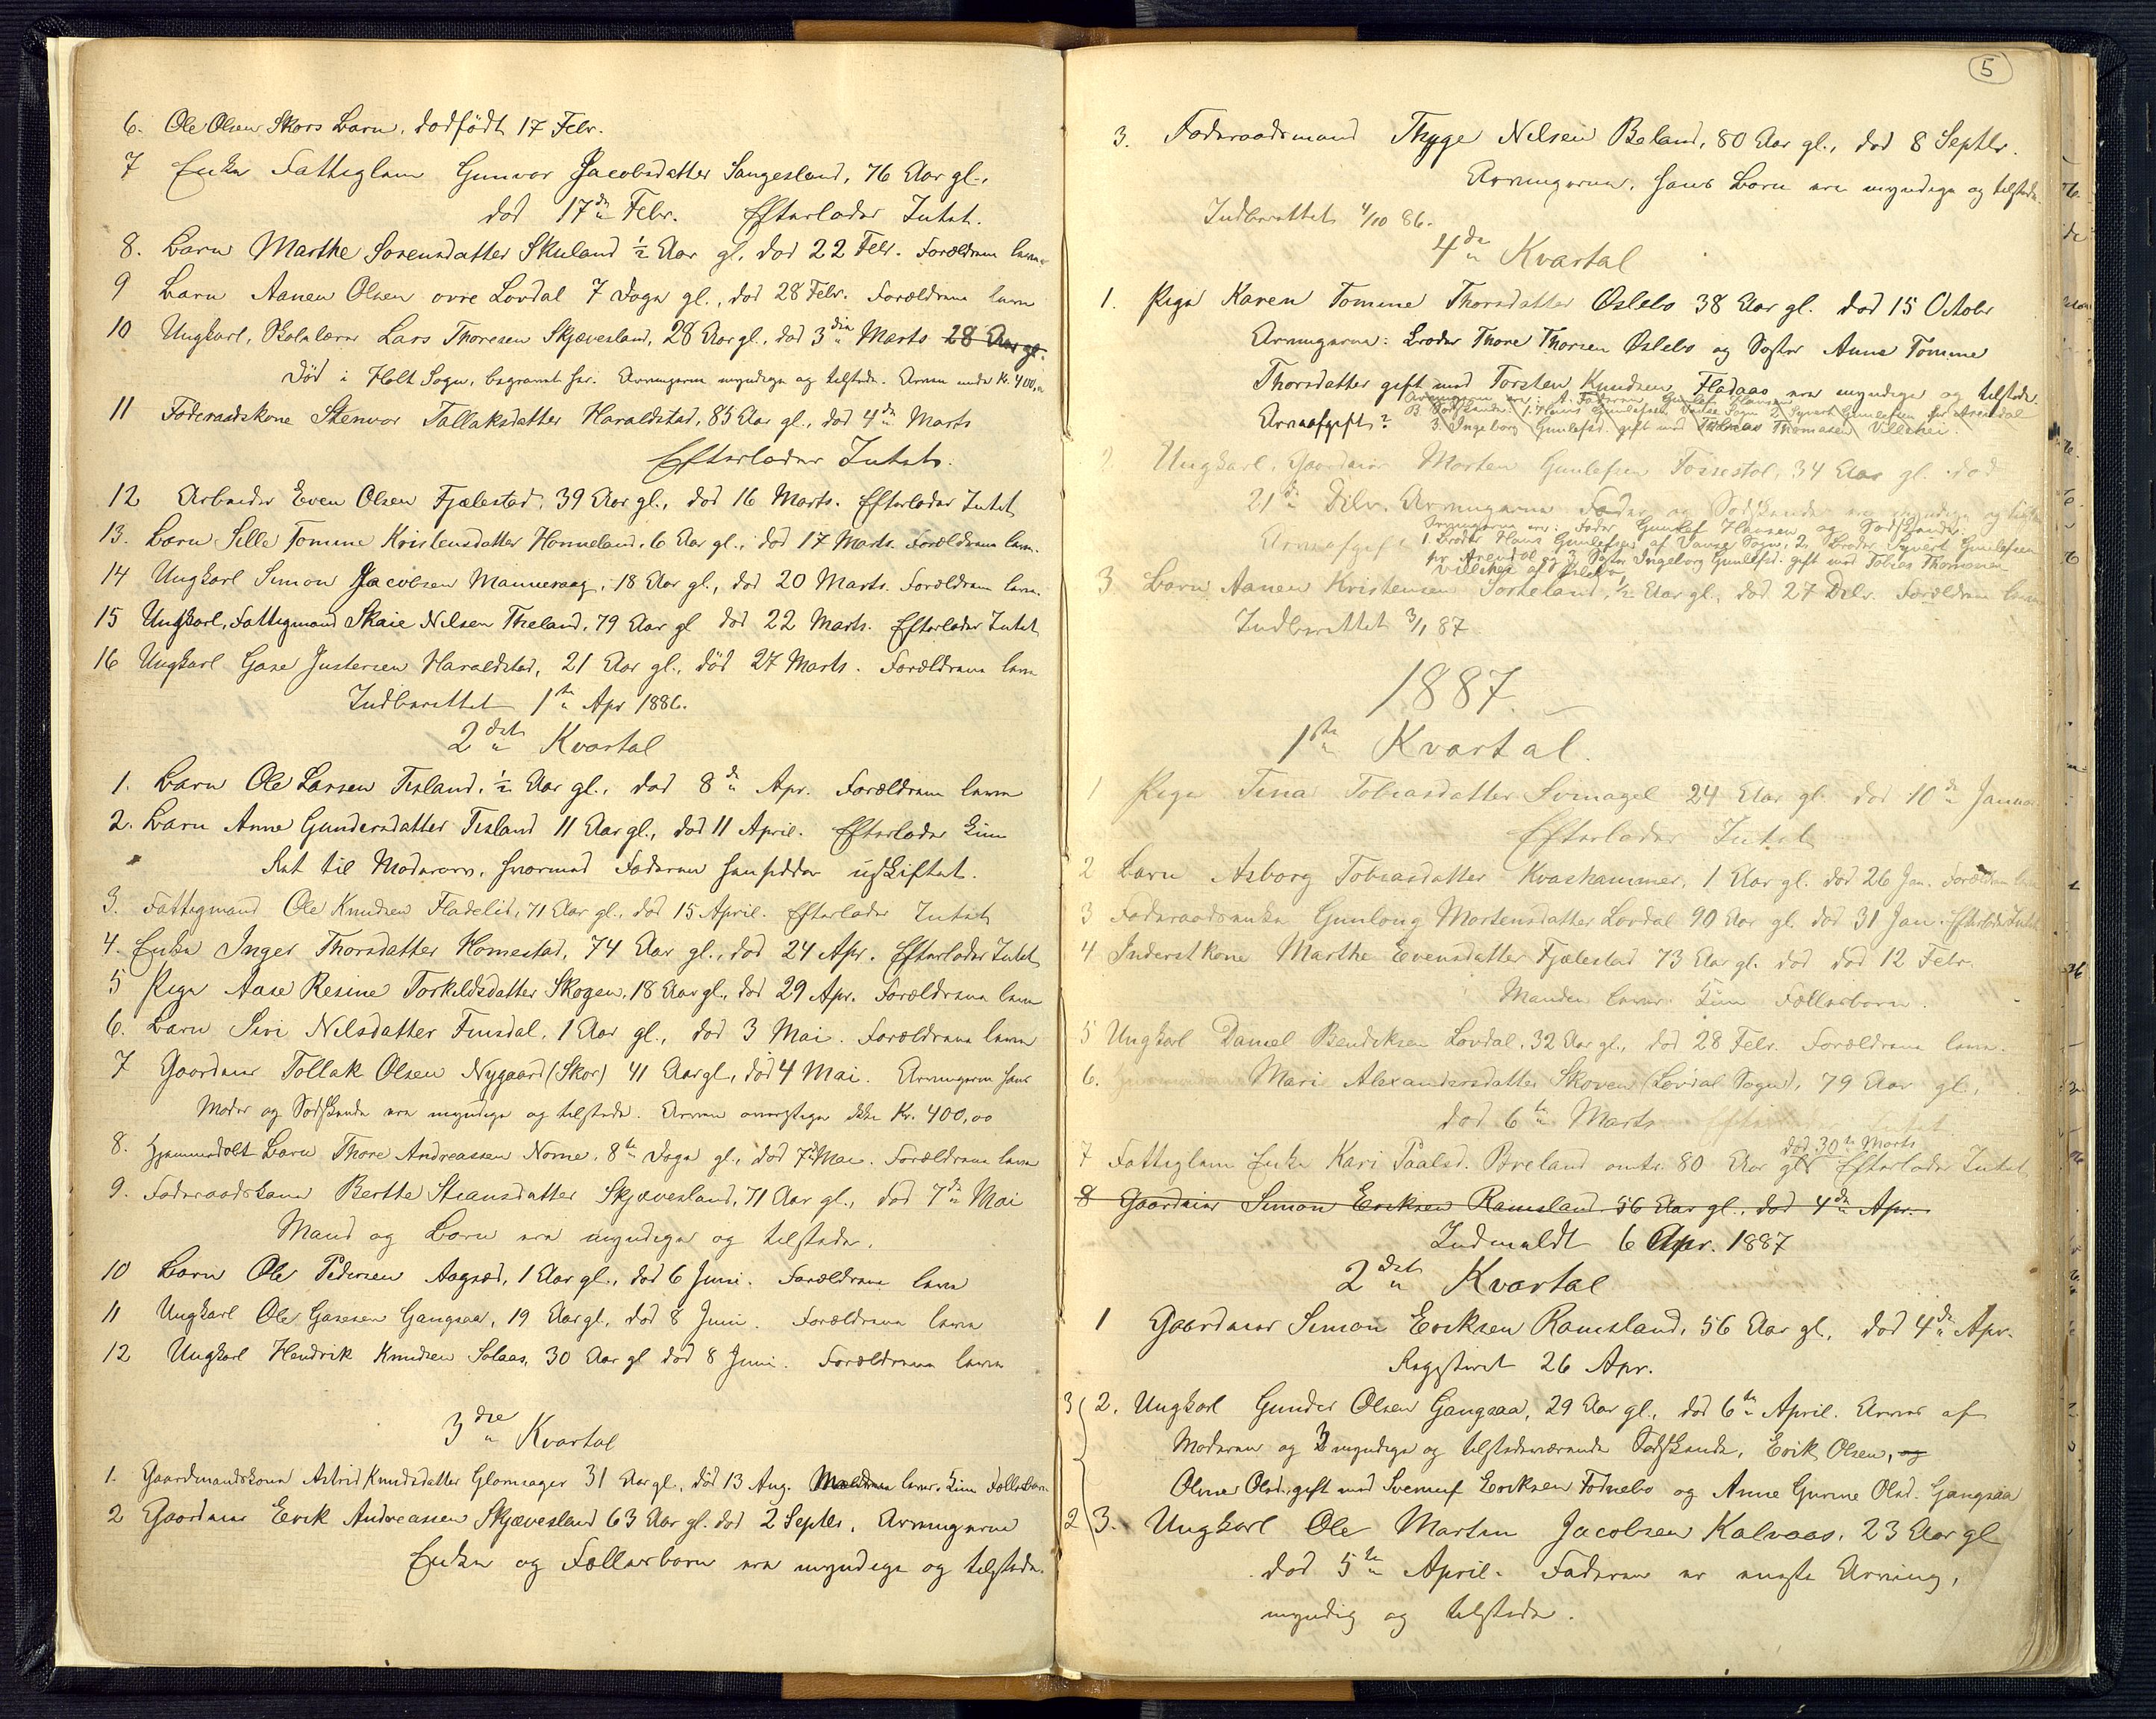 6. Ole Olsen Skors Barn, dødfødt 17 Febr.
7 Enke Fattiglem Gunvor Jacobsdatter Sangesland, 76 Aar gl.,
død 17de Febr. Efterlader Intet.
8. Barn Marthe Sorensdatter Skuland ½ Aar gl. død 22 Febr. Forældrene leve
9 Barn Aanen Olsen øvre Lovdal 7 Dage gl., død 28 Febr. Forældrene leve
10 Ungkarl, Skolelærer Lars Thoresen Skjævesland, 28 Aar gl., død 3die Marts 28 Aar gl.
Død i Holt Sogn, begravet her. Arvingerne myndige og tilstede. Arven under Kr. 400,00
11 Føderaadskone Stenvor Tallaksdatter Haraldstad, 85 Aar gl., død 4de Marts
Efterlader Intet.
12 Arbeider Even Olsen Fjælestad, 39 Aar gl., død 16 Marts. Efterlader Intet
13. Barn Sille Tomine Kristensdatter Honneland, 6 Aar gl., død 17 Marts. Forældrene leve.
14 Ungkarl Simon Jacobsen Mannevaag, 18 Aar gl., død 20 Marts. Forældrene leve.
15 Ungkarl, Fattigmand Skaie Nilsen Treland, 79 Aar gl død 22 Marts. Efterlader Intet
16 Ungkarl Gase Justersen Haraldstad, 21 Aar gl., død 27 Marts. Forældrene leve
Indberettet 1ste Apr 1886.
2det Kvartal
1. Barn Ole Larsen Tisland, ½ Aar gl., død 8de Apr. Forældrene leve
2. Barn Anne Gundersdatter Tisland 11 Aar gl., død 11 April. Efterlader kun
Ret til Mødrearv, hvormed Faderen hensidder uskiftet.
3. Fattigmand Ole Knudsen Fladelid, 71 Aar gl., død 15 April. Efterlader Intet
4. Enke Inger Thorsdatter Homestad, 74 Aar gl., død 24 Apr. Efterlader Intet
5 Pige Aase Resine Torkildsdatter Skogen, 18 Aar gl., død 29 Apr. Forældrene leve
6. Barn Siri Nilsdatter Finsdal, 1 Aar gl., død 3 Mai. Forældrene leve
7 Gaardmand Tollak Olsen Nygaard (Skor) 41 Aar gl, død 4 Mai. Arvingerne hans
Moder og Sødskende ere myndige og tilstede. Arven overstiger ikke Kr. 400,00
8. Hjemmedøbt Barn Thore Andreassen Nome, 8te Dage gl., død 7de Mai. Forældrene leve
9. Føderaadskone Berthe Stiansdatter Skjævesland, 71 Aar gl., død 7de Mai
Mand og Børn ere myndige og tilstede.
10 Barn Ole Pedersen Aagsæd, 1 Aar gl., død 6 Juni. Forældrene leve
11 Ungkarl Ole Gasesen Gangsaa, 19 Aar gl, død 8 Juni. Forældrene leve
12 Ungkarl Hendrik Knudsen Solaas, 30 Aar gl død 8 Juni. Forældrene leve
3die Kvartal
1. Gaardmandskone Astrid Knudsdatter Glomsager 31 Aar gl., død 13 Aug. lever. Kun Fællesbørn
2 Gaardmand Eerik Andreassen Skjævesland 63 Aar gl. død 2 Septbr. Arvingerne
Enke og Fællesbørn ere myndige og tilstede.
5
3. Føderaadsmand Thyge Nilsen Beland, 80 Aar gl., død 8 Septbr.
Arvingerne, hans Børn ere myndige og tilstede.
Indberettet 4/10 86.
4de Kvartal
1. Pige Karen Tomine Thorsdatter Øslebø 38 Aar gl. død 15 Octobr
Arvingerne: Broder Thore Thorsen Øslebø og Søster Anne Tomine
Thorsdatter gift med Torsten Knudsen Fladaas ere myndige og tilstede.
Arvingerne ere: A. Faderen, Gunlef Hansen
B Sødskende: 1. Hans Gunlefsen Vanse Sogn 2. Syvert Gunlefsen pr Arendal
Arveafgift? 3. Ingeborg Gunlefsd. gift med Tobias Thomasen Villehei
2. Ungkarl, Gaardmand Morten Gunlefsen Fossestøl, 34 Aar gl. død
21de Debr. Arvingerne Fader og Sødskende ere myndige og tilstede
Arvingerne ere: Fader Gunlef Hansen og Sødskende:
Arveafgift 1. Broder Hans Gunlefsen af Vanse Sogn, 2. Broder Syvert Gunlefsen
pr Arendal og 3 Søster Ingeborg Gunlefsd. gift med Tobias Thomasen
Villehei af
3 Barn Aanen Kristensen Sorkeland, ½ Aar gl, død 27 Debr. Forældrene leve
Indberettet 3/1 87
1887.
1ste Kvartal.
1 Pige Tina Tobiasdatter Svinagel 24 Aar gl. død 10de Januar
Efterlader Intet
2 Barn Asborg Tobiasdatter Kvashammer, 1 Aar gl. død 26 Jan. Forældrene leve
3 Føderaadsenke Gunlaug Mortensdatter Lovdal 90 Aar gl. død 31 Jan. Efterlader Intet
4 Inderstkone Marthe Evensdatter Fjælestad 73 Aar gl. død død 12 Febr.
Manden lever. Kun Fællesbørn.
5 Ungkarl Daniel Bendiksen Lovdal, 32 Aar gl., død 28 Febr. Forældrene leve.
6. Mari Alexandersdatter Skoven (Løvdal Sogn), 79 Aar gl.,
død 6te Marts Efterlader Intet.
død 30te Marts
7 Fattiglem Enke Kari Paalsd. Breland omtr. 80 Aar gl. Efterlader Intet
8 Gaardmand Simon Eriksen Ramsland 56 Aar gl., død 4de Apr.
Indmeldt 6 Apr. 1887
2det Kvartal
1 Gaardmand Simon Eriksen Ramsland, 56 Aar gl, død 4de Apr.
Registeret 26 Apr.
3 2. Ungkarl Gunder Olsen Gangsaa, 29 Aar gl., død 6te April. Arves af
Moderen og 3 myndige og tilstedeværende Sødskende, Erik Olsen, og
Oline Olsd. gift med Svenuf Eriksen Fodnebø og Anne Gurine Olsd. Gangsaa
2 3. Ungkarl Ole Martin Jacobsen Kalvaas, 23 Aar gl
død 5te April. Faderen er eneste Arving,
myndig og tilstede.